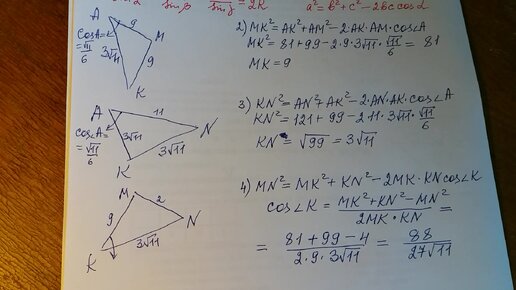 sin β   sin γ = 2R   a² = b² + c² - 2bc cos α
A
9
cos A =
= √11
6
3√11
M
9
K
2) MK² = AK² + AM² - 2·AK·AM·cos∠A
MK² = 81 + 99 - 2·9·3√11·√11/6 = 81
MK = 9
A
11
cos∠A =
= √11
6
3√11
N
K
3√11
3) KN² = AN² + AK² - 2·AN·AK·cos∠A
KN² = 121 + 99 - 2·11·3√11·√11/6
KN = √99 = 3√11
M
2
9
N
K
3√11
4) MN² = MK² + KN² - 2MK·KN cos∠K
cos∠K = (MK² + KN² - MN²)/(2MK·KN) =
= (81 + 99 - 4)/(2·9·3√11) = 88/(27√11)